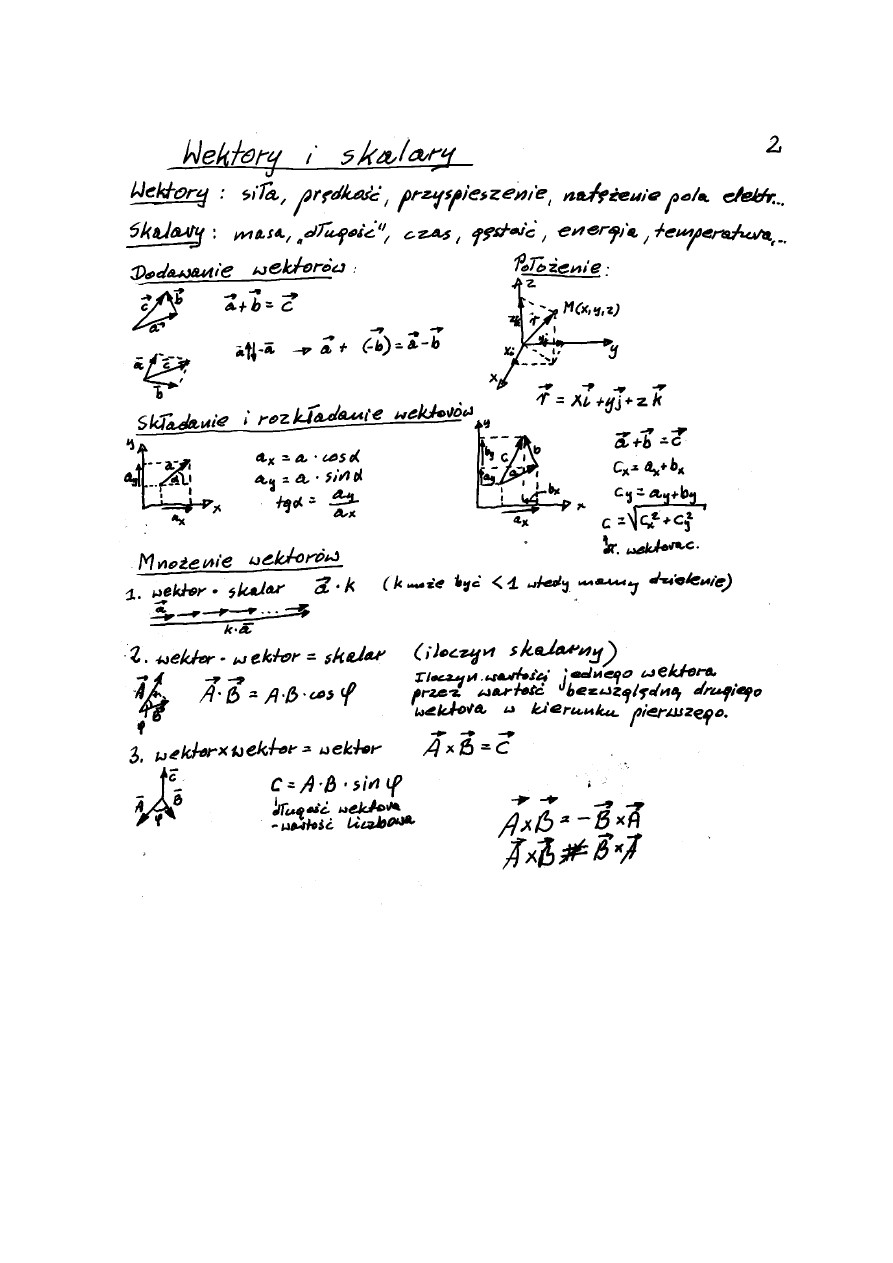 2
Wektory i skalary
Wektory : siła, prędkość, przyspieszenie, natężenie pola elektr...
Skalary : masa, „długość", czas, gęstość, energia, temperatura,...
Dodawanie wektorów :
c⃗ b⃗ a⃗
a⃗ + b⃗ = c⃗
a⃗ c⃗ b⃗
a⃗ ↑↓ -a⃗ → a⃗ + (-b⃗) = a⃗ - b⃗
Położenie :
z
M(x,y,z)
r⃗
y
x
r⃗ = xi⃗ + yj⃗ + zk⃗
Składanie i rozkładanie wektorów
y
a
α
ay
ax
x
ax = a · cosα
ay = a · sinα
tgα = ay/ax
y
by
c
b
ay
a
bx
ax
x
a⃗ + b⃗ = c⃗
cx = ax + bx
cy = ay + by
c = √(cx² + cy²)
dł. wektora c.
Mnożenie wektorów
1. wektor · skalar a⃗ · k (k może być < 1 wtedy mamy dzielenie)
a⃗
...
k·a⃗
2. wektor · wektor = skalar (iloczyn skalarny)
A⃗
B⃗
φ
A⃗ · B⃗ = A·B·cos φ
Iloczyn wartości jednego wektora
przez wartość bezwzględną drugiego
wektora w kierunku pierwszego.
3. wektor x wektor = wektor A⃗ x B⃗ = C⃗
C⃗
A⃗ B⃗
φ
C = A·B · sin φ
długość wektora
- wartość liczbowa
A⃗ x B⃗ = - B⃗ x A⃗
A⃗ x B⃗ ≠ B⃗ x A⃗